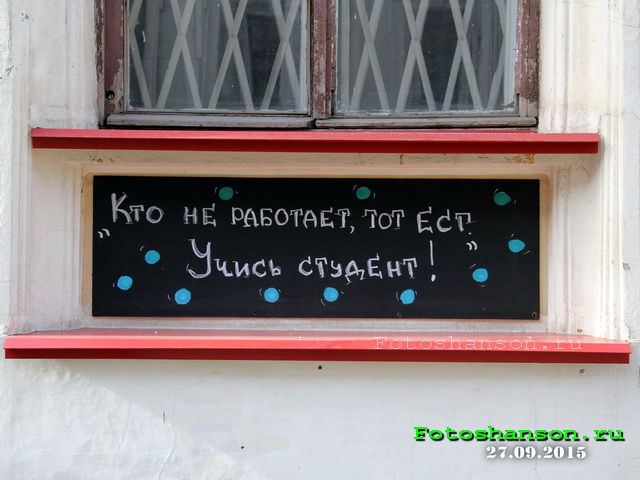 Кто не работает, тот ест.
„Учись студент!”
Fotoshanson.ru
Fotoshanson.ru
27.09.2015